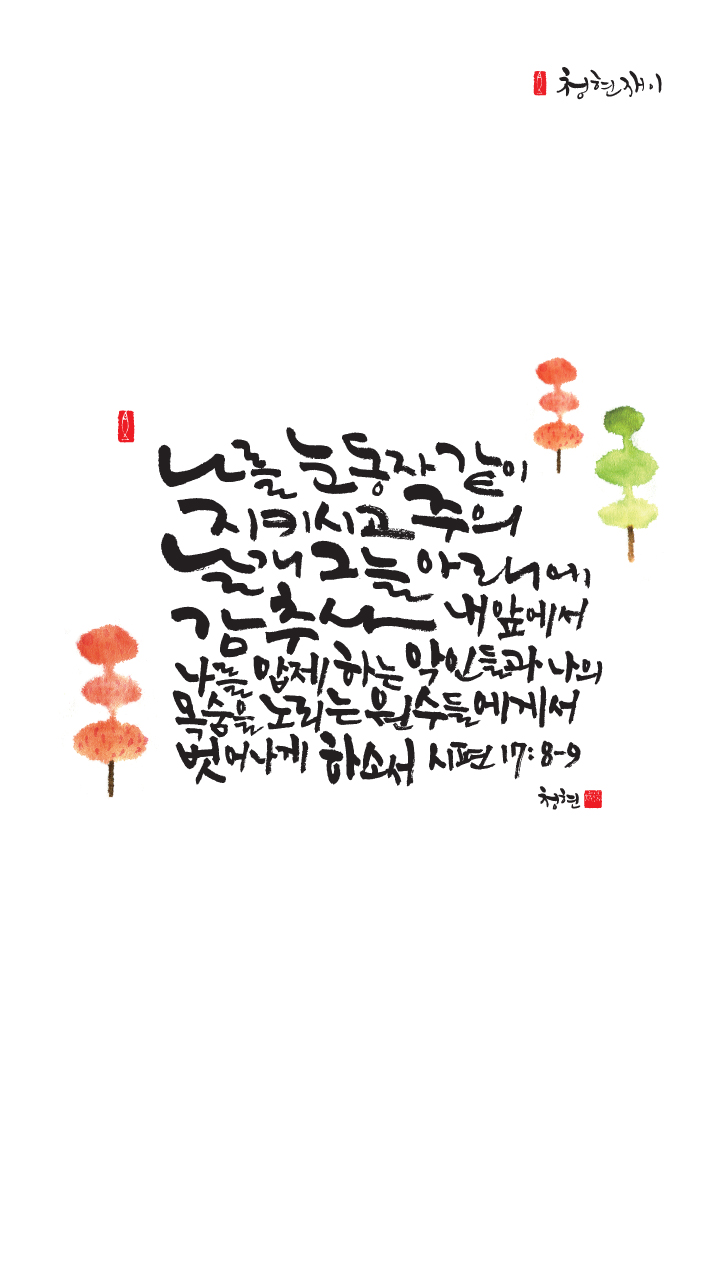 청현재이
나를 눈동자 같이
지키시고 주의
날개 그늘 아래에
감추사 내 앞에서
나를 압제하는 악인들과 나의
목숨을 노리는 원수들에게서
벗어나게 하소서 시편 17:8-9
청현